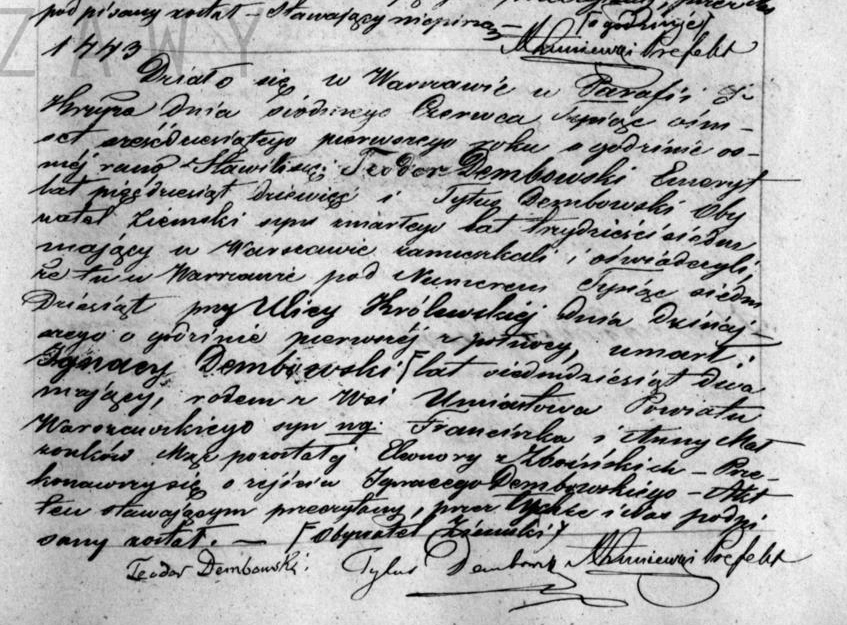 podpisany został – Stawający niepiszą –
(o godzinie)
1443 Prefekt
Działo się w Warszawie w Parafii Ś.
Krzyża dnia siódmego Czerwca Tysiąc ośm-
set sześćdziesiątego pierwszego roku o godzinie os-
méj rano Stawili się; Teodor Dembowski Emeryt
lat pięćdziesiąt dziewięć i Tytus Dembowski Oby
watel Ziemski syn zmarłego lat trzydzieści siedm
mający w Warszawie zamieszkali i oświadczyli,
że tu w Warszawie pod Numerem Tysiąc siedm
Dziesiąt przy Ulicy Królewskiéj dnia dzisiaj-
szego o godzinie pierwszéj z północy, umarł:
Ignacy Dembowski ⌈ lat siedmdziesiąt dwa
mający, rodem z Wsi Umiastowa Powiatu
Warszawskiego syn ng. Franciszka i Anny Mał
żonków Mąż pozostałej Elenory z Zbosińskich – Prze-
konawszy się o zejściu Ignacego Dembowskiego – Akt
ten stawającym przeczytany, przez tychże i Nas podpi
sany został. – ⌈ Obywatel Ziemski)
Teodor Dembowski. Tytus Dembowski Prefekt